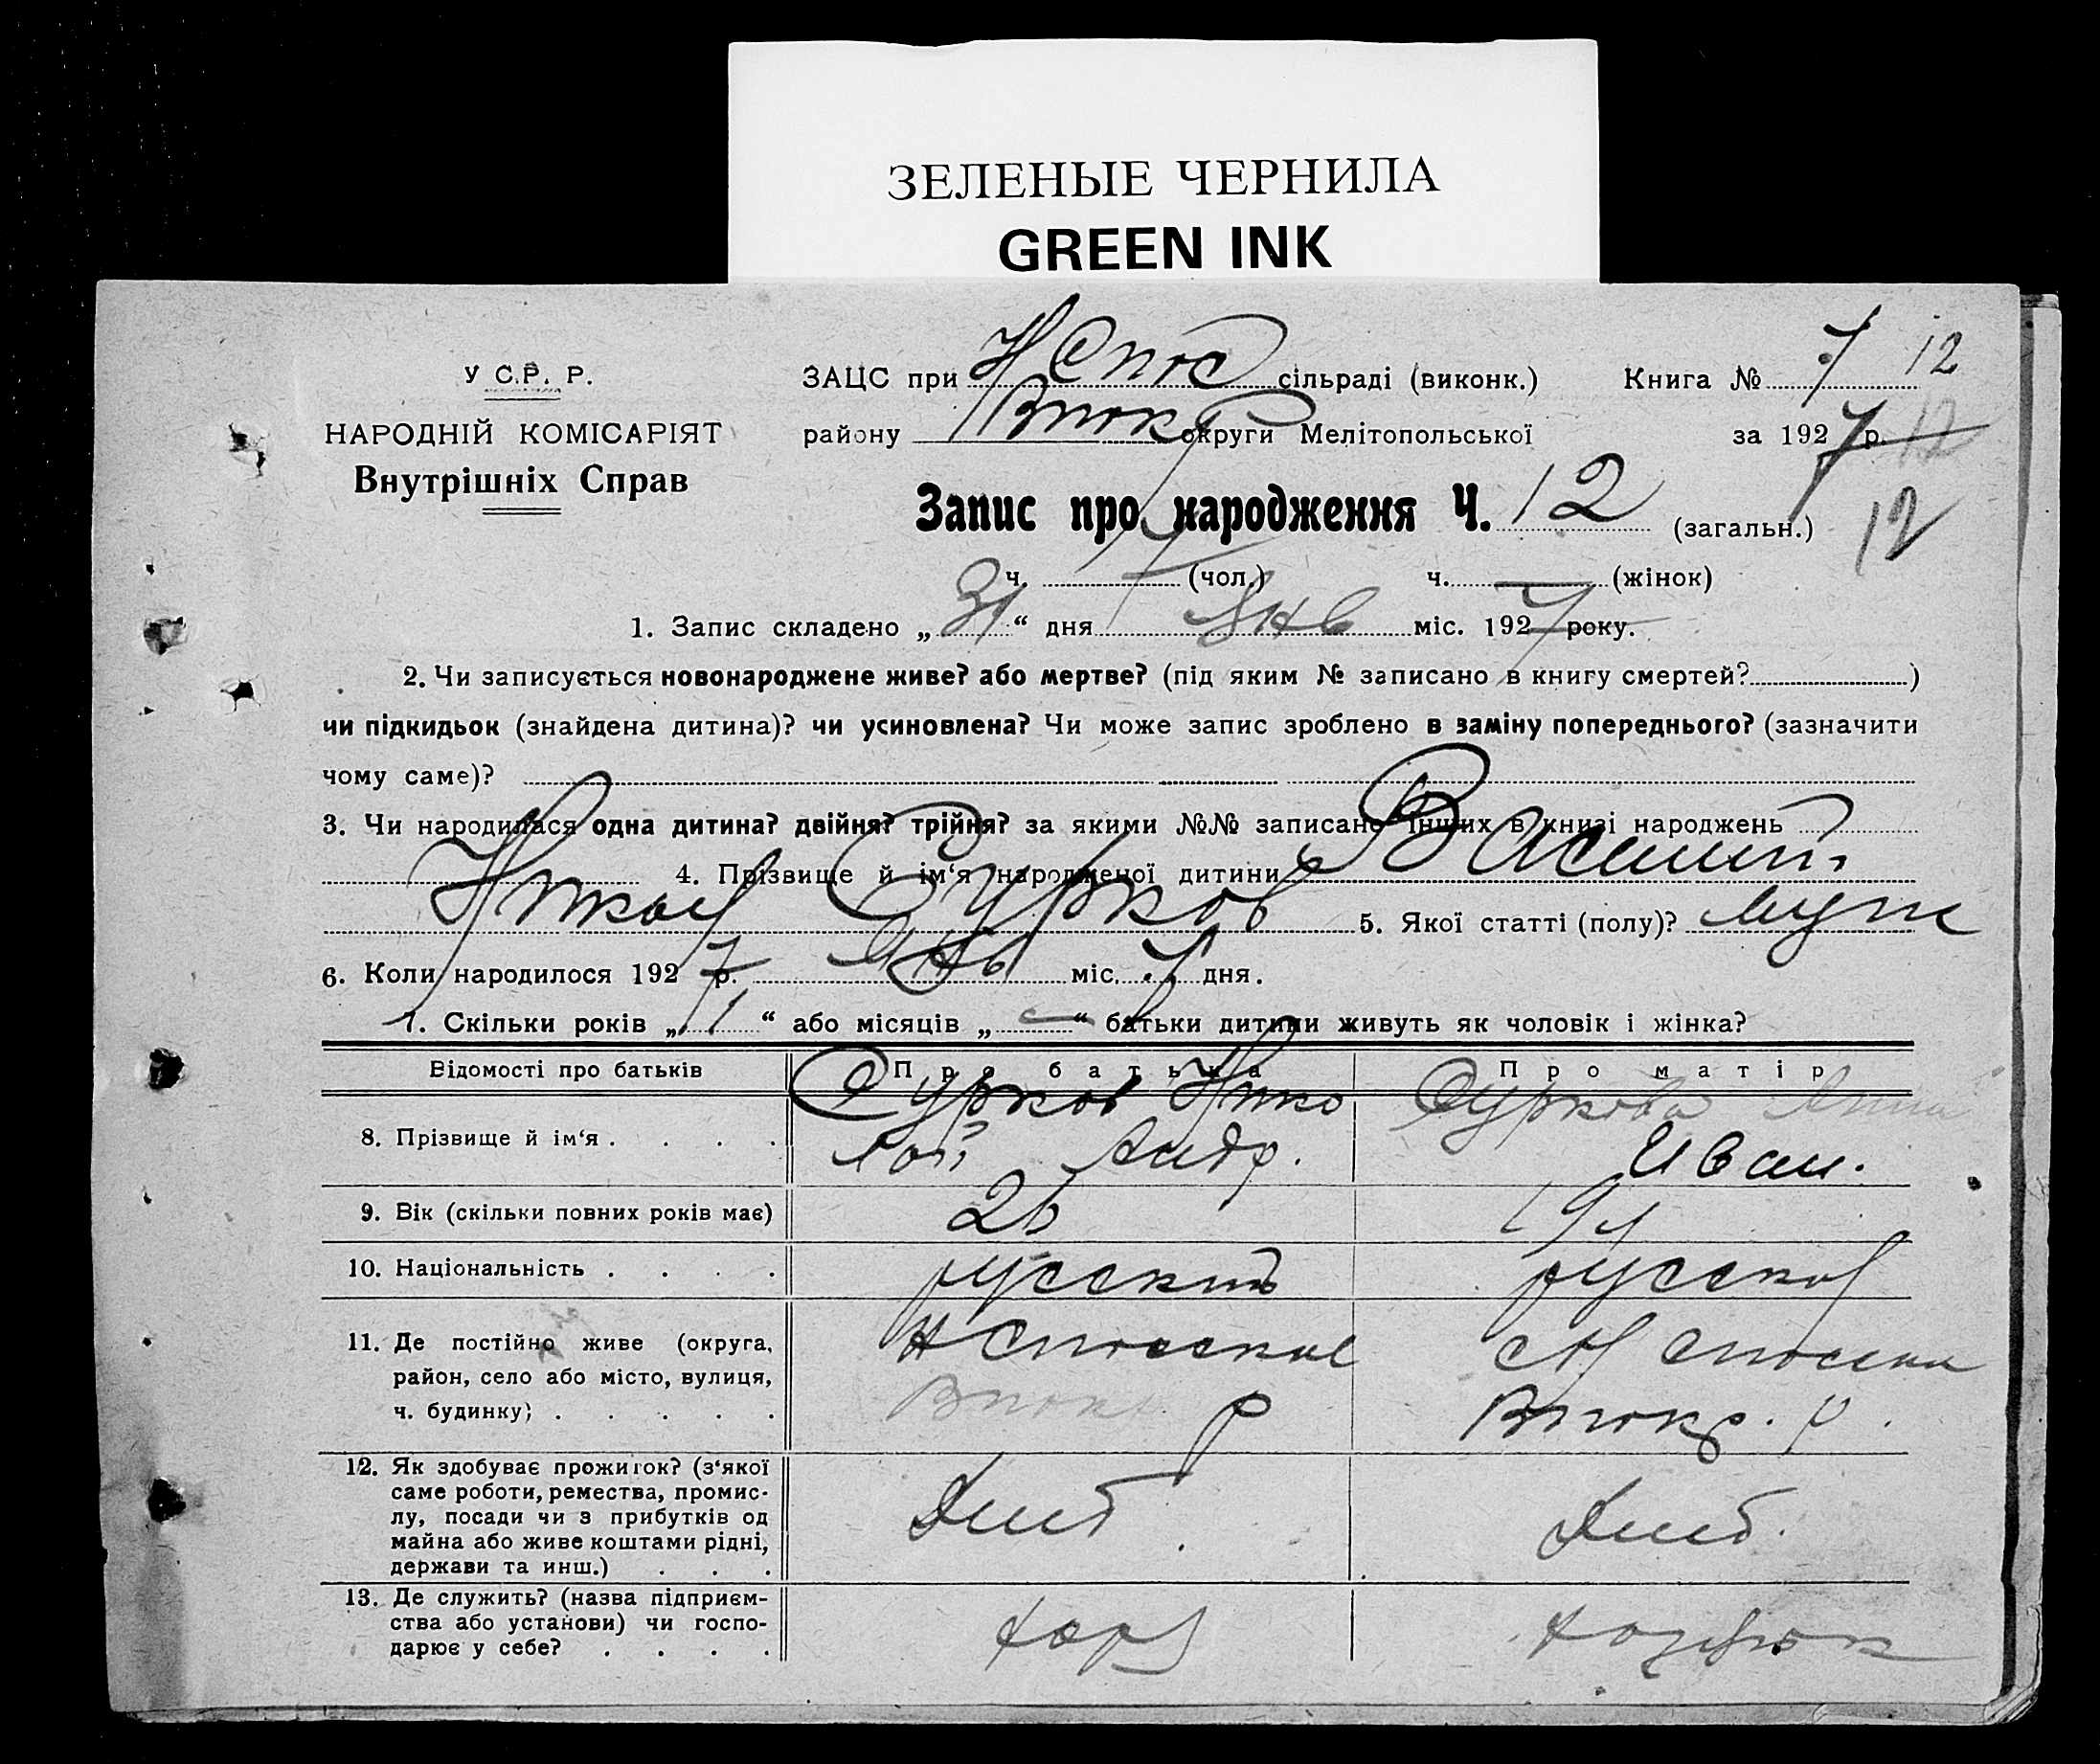 ЗЕЛЕНЫЕ ЧЕРНИЛА
GREEN INK
У С.Р. Р.
НАРОДНІЙ КОМІСАРІЯТ
Внутрішніх Справ
ЗАЦС при Н Спас сільраді (виконк.) Книга № 7 12
району Впокр округи Мелітопольської за 1927 р. 12
Запис про народження Ч. 12 (загальн.) 12
ч. 7 (чол.) ч. — (жінок)
1. Запис складено „31“ дня Янв міс. 1927 року.
2. Чи записується новонароджене живе? або мертве? (під яким № записано в книгу смертей? )
чи підкидьок (знайдена дитина)? чи усиновлена? Чи може запис зроблено в заміну попереднього? (зазначити
чому саме)?
3. Чи народилася одна дитина? двійня? трійня? за якими №№ записано інших в книзі народжень
4. Прізвище й ім‘я народженої дитини Василий
Никол Сурков 5. Якої статті (полу)? муж
6. Коли народилося 1927 р. Янв міс. дня.
7. Скільки років „1“ або місяців „—“ батьки дитини живуть як чоловік і жінка?
Відомості про батьків Про батька Про матір
8. Прізвище й ім‘я . . . . Сурков Нико Суркова Анна
лай Андр. Иван.
9. Вік (скільки повних років має) 26 19 л
10. Національність . . . . русский русская
11. Де постійно живе (округа, Н Спасское с Н Спасское
район, село або місто, вулиця,
ч. будинку) . . . . . Впок р Впокр. р.
12. Як здобуває прожиток? (з‘якої
саме роботи, ремества, промис-
лу, посади чи з прибутків од
майна або живе коштами рідні,
держави та инш.) . . .
13. Де служить? (назва підприєм-
ства або установи) чи госпо-
дарює у себе? . . . .